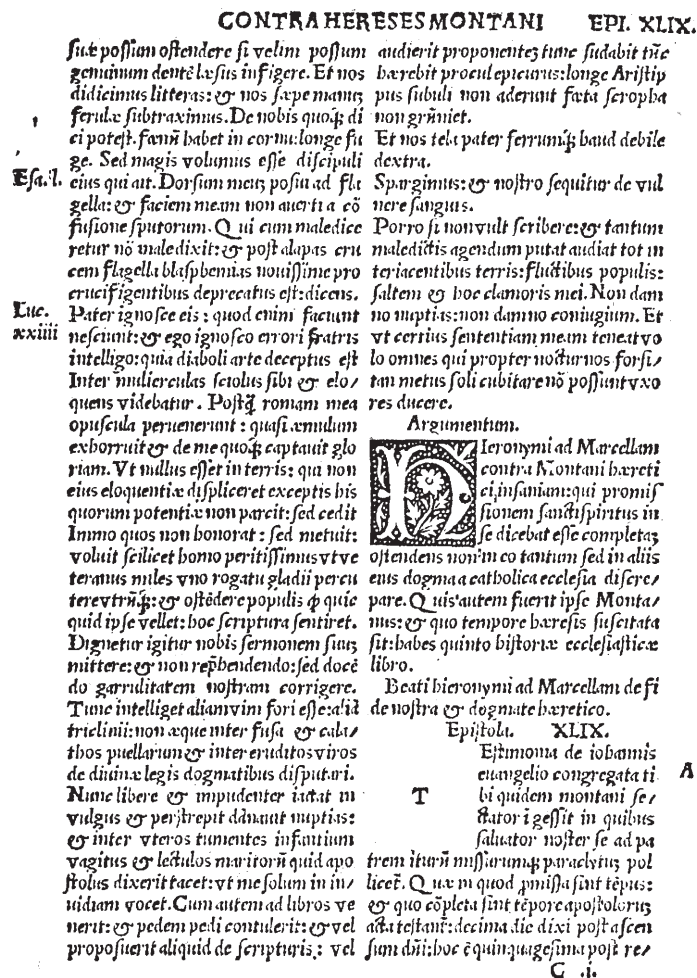 CONTRA HERESES MONTANI EPI. XLIX.
suæ possum ostendere si velim possum
genuinum dentē læsus infigere. Et nos
didicimus litteras: & nos sæpe manuʒ
ferulæ subtraximus. De nobis quoqꝫ di
ci potest. fœnū habet in cornu: longe fu
ge. Sed magis volumus esse discipuli
Esa. l. eius qui ait. Dorsum meuʒ posui ad fla
gella: & faciem meam non auerti a cō
fusione sputorum. Qui cum maledice
retur nō maledixit: & post alapas cru
cem flagella blasphemias nouissime pro
crucifigentibus deprecatus est: dicens.
Luc. Pater ignosce eis: quod enim faciunt
xxiiii nesciunt: & ego ignosco errori fratris
intelligo: quia diaboli arte deceptus est
Inter mulierculas sciolus sibi & elo/
quens videbatur. Postq̄ romam mea
opuscula peruenerunt: quasi æmulum
exhorruit & de me quoqꝫ captauit glo
riam. Vt nullus esset in terris: qui non
eius eloquentiæ displiceret exceptis his
quorum potentiæ non parcit: sed cedit
Immo quos non honorat: sed metuit:
voluit scilicet homo peritissimus vt ve
teranus miles vno rogatu gladii percu
tere vtrūqꝫ: & ostēdere populis ꝙ quic
quid ipse vellet: hoc scriptura sentiret.
Dignetur igitur nobis sermonem suuʒ
mittere: & non rep̄hendendo: sed docē
do garrulitatem nostram corrigere.
Tunc intelliget aliam vim fori esse: aliā
triclinii: non æque inter fusa & cala/
thos puellarum & inter eruditos viros
de diuinæ legis dogmatibus disputari.
Nunc libere & impudenter iactat in
vulgus & perstrepit dānauit nuptias:
& inter vteros tumentes infantium
vagitus & lectulos maritorū quid apo
stolus dixerit tacet: vt me solum in in/
uidiam vocet. Cum autem ad libros ve
nerit: & pedem pedi contulerit: & vel
proposuerit aliquid de scripturis: vel
audierit proponenteʒ tunc sudabit tūc
hærebit procul epicurus: longe Aristip
pus subulci non aderunt fœta scropha
non grūniet.
Et nos tela pater ferrumqꝫ haud debile
dextra.
Spargimus: & nostro sequitur de vul
nere sanguis.
Porro si non vult scribere: & tantum
maledictis agendum putat audiat tot in
teriacentibus terris: fluctibus populis:
saltem & hoc clamoris mei. Non dam
no nuptias: non damno coniugium. Et
vt certius sententiam meam teneat vo
lo omnes qui propter nocturnos forsi/
tan metus soli cubitare nō possunt vxo
res ducere.
Argumentum.
HIeronymi ad Marcellam
contra Montani hæreti
ci, insaniam: qui promis
sionem sancti spiritus in
se dicebat esse completaʒ
ostendens non in eo tantum sed in aliis
eius dogma a catholica ecclesia discre/
pare. Quis autem fuerit ipse Monta/
nus: & quo tempore hæresis suscitata
sit: habes quinto historiæ ecclesiasticæ
libro.
Beati hieronymi ad Marcellam de fi
de nostra & dogmate hæretico.
Epistola. XLIX.
TEstimonia de iohannis
euangelio congregata ti A
bi quidem montani se/
ctator īgessit in quibus
saluator noster se ad pa
trem iturū missurumqꝫ paraclytuʒ pol
licet̄. Quæ in quod ꝓmissa sint tēpus:
& quo cōpleta sint tēpore apostoloruʒ
acta testant̄: decima die dixi post ascen
sum dn̄i: hoc ē quinquagesima post re/
G .i.